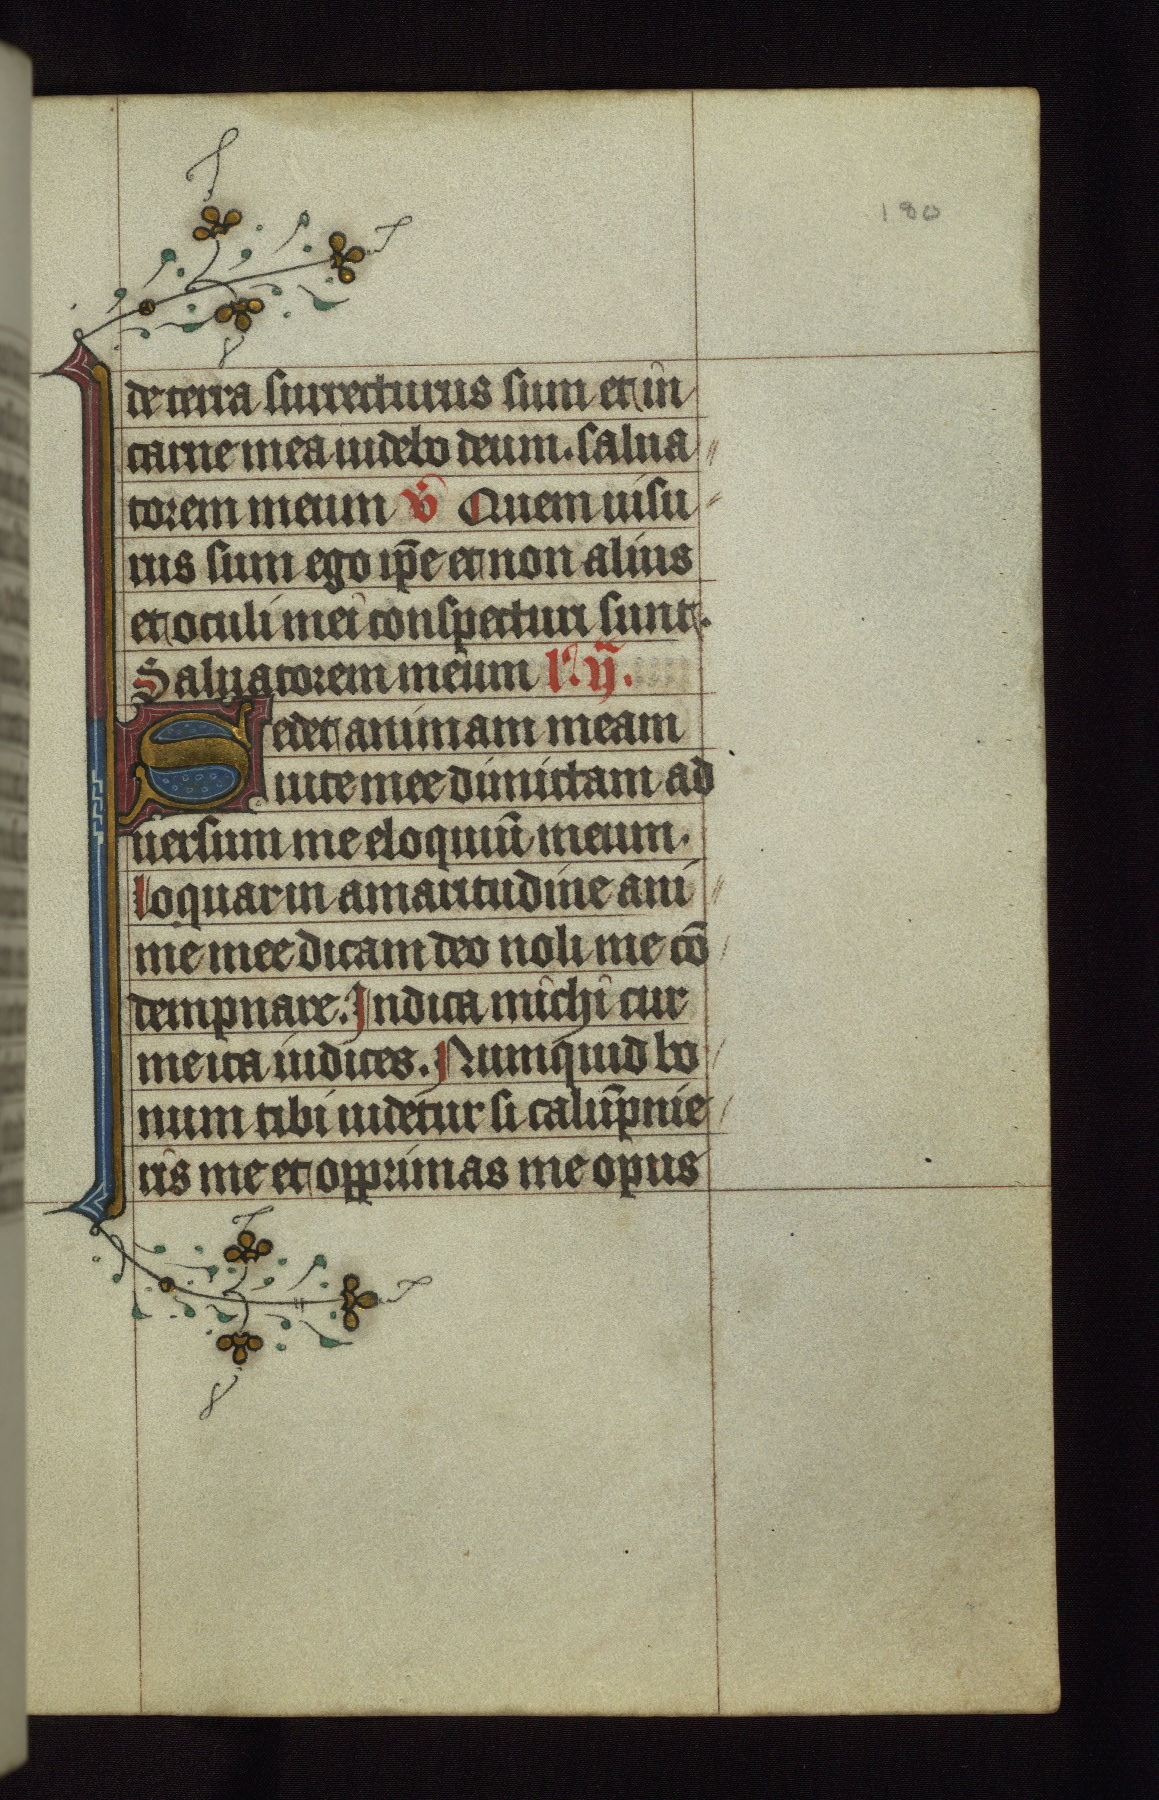 180
de terra surrecturus sum et in
carne mea uidebo deum. salua
torem meum v̇ Quem uisu
rus sum ego ip̄e et non alius
et oculi mei conspecturi sunt.
Saluatorem meum l'. ij.
Sedet animam meam
uite mee dimittam ad
uersum me eloquiū meum.
loquar in amaritudine ani
me mee dicam deo noli me cō
dempnare. Indica michi cur
me ita iudices. Numquid bo
num tibi uidetur si calūpnie
ris me et opprimas me opus